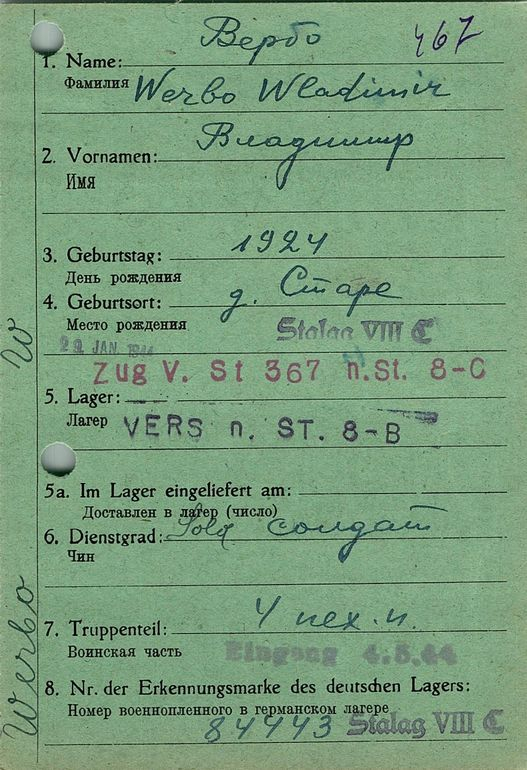 Вербо 467
1. Name:
Фамилия Werbo Wladimir
Владимир
2. Vornamen:
Имя
3. Geburtstag: 1924
День рождения
4. Geburtsort: д. Старе
Место рождения
Stalag VIII C
29 JAN 1944
Zug V. St 367 n.St. 8-C
5. Lager:
Лагер VERS n. ST. 8-B
5a. Im Lager eingeliefert am:
Доставлен в лагер (число)
6. Dienstgrad: Sold солдат
Чин
4 пех. п.
7. Truppenteil:
Воинская часть Eingang 4.5.44
8. Nr. der Erkennungsmarke des deutschen Lagers:
Номер военнопленного в германском лагере
84443 Stalag VIII C
W
Werbo